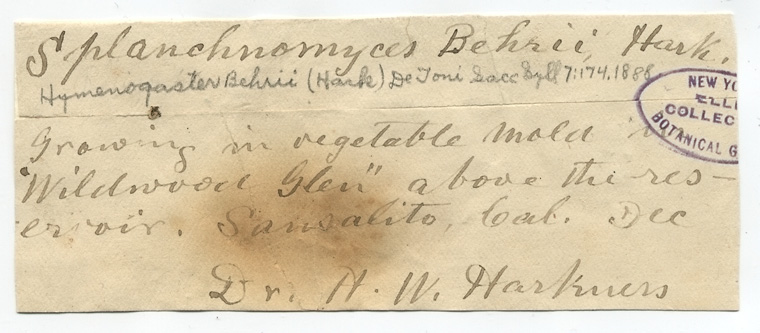 Splanchnomyces Behrii, Hark.
Hymenogaster Behrii (Hark) De Toni Sacc Syll 7:174.1888
NEW YO
ELLI
COLLEC
BOTANICAL G
Growing in vegetable mold in
"Wildwood Glen" above the res-
ervoir. Sansalito, Cal. Dec
Dr. H. W. Harkness